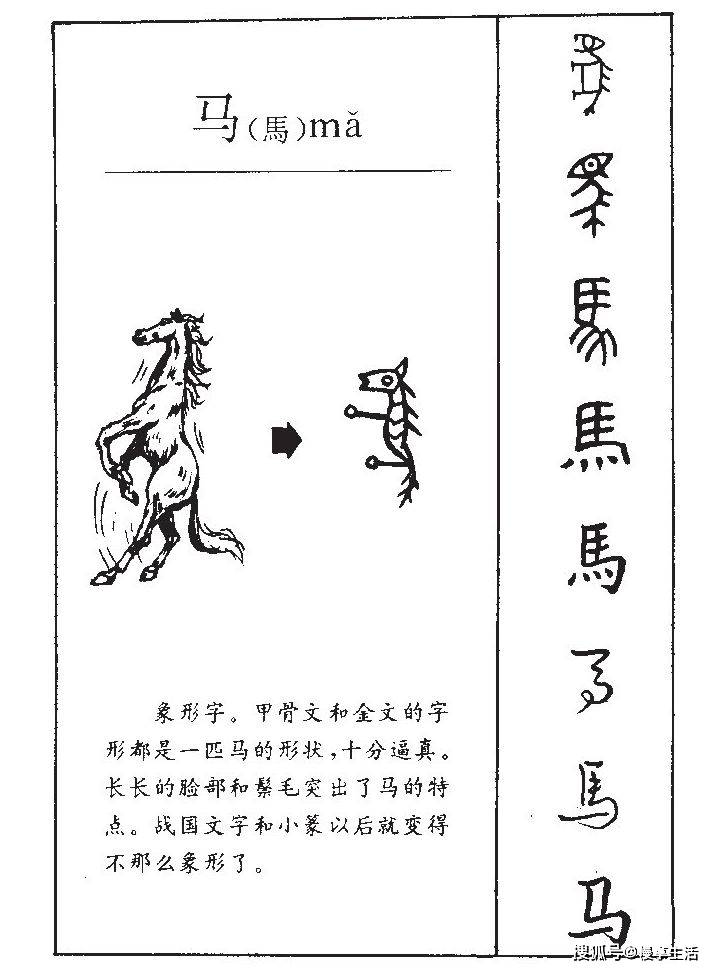 马(馬)mǎ
象形字。甲骨文和金文的字
形都是一匹马的形状,十分逼真。
长长的脸部和鬃毛突出了马的特
点。战国文字和小篆以后就变得
不那么象形了。
馬
馬
馬
馬
马
搜狐号@慢享生活